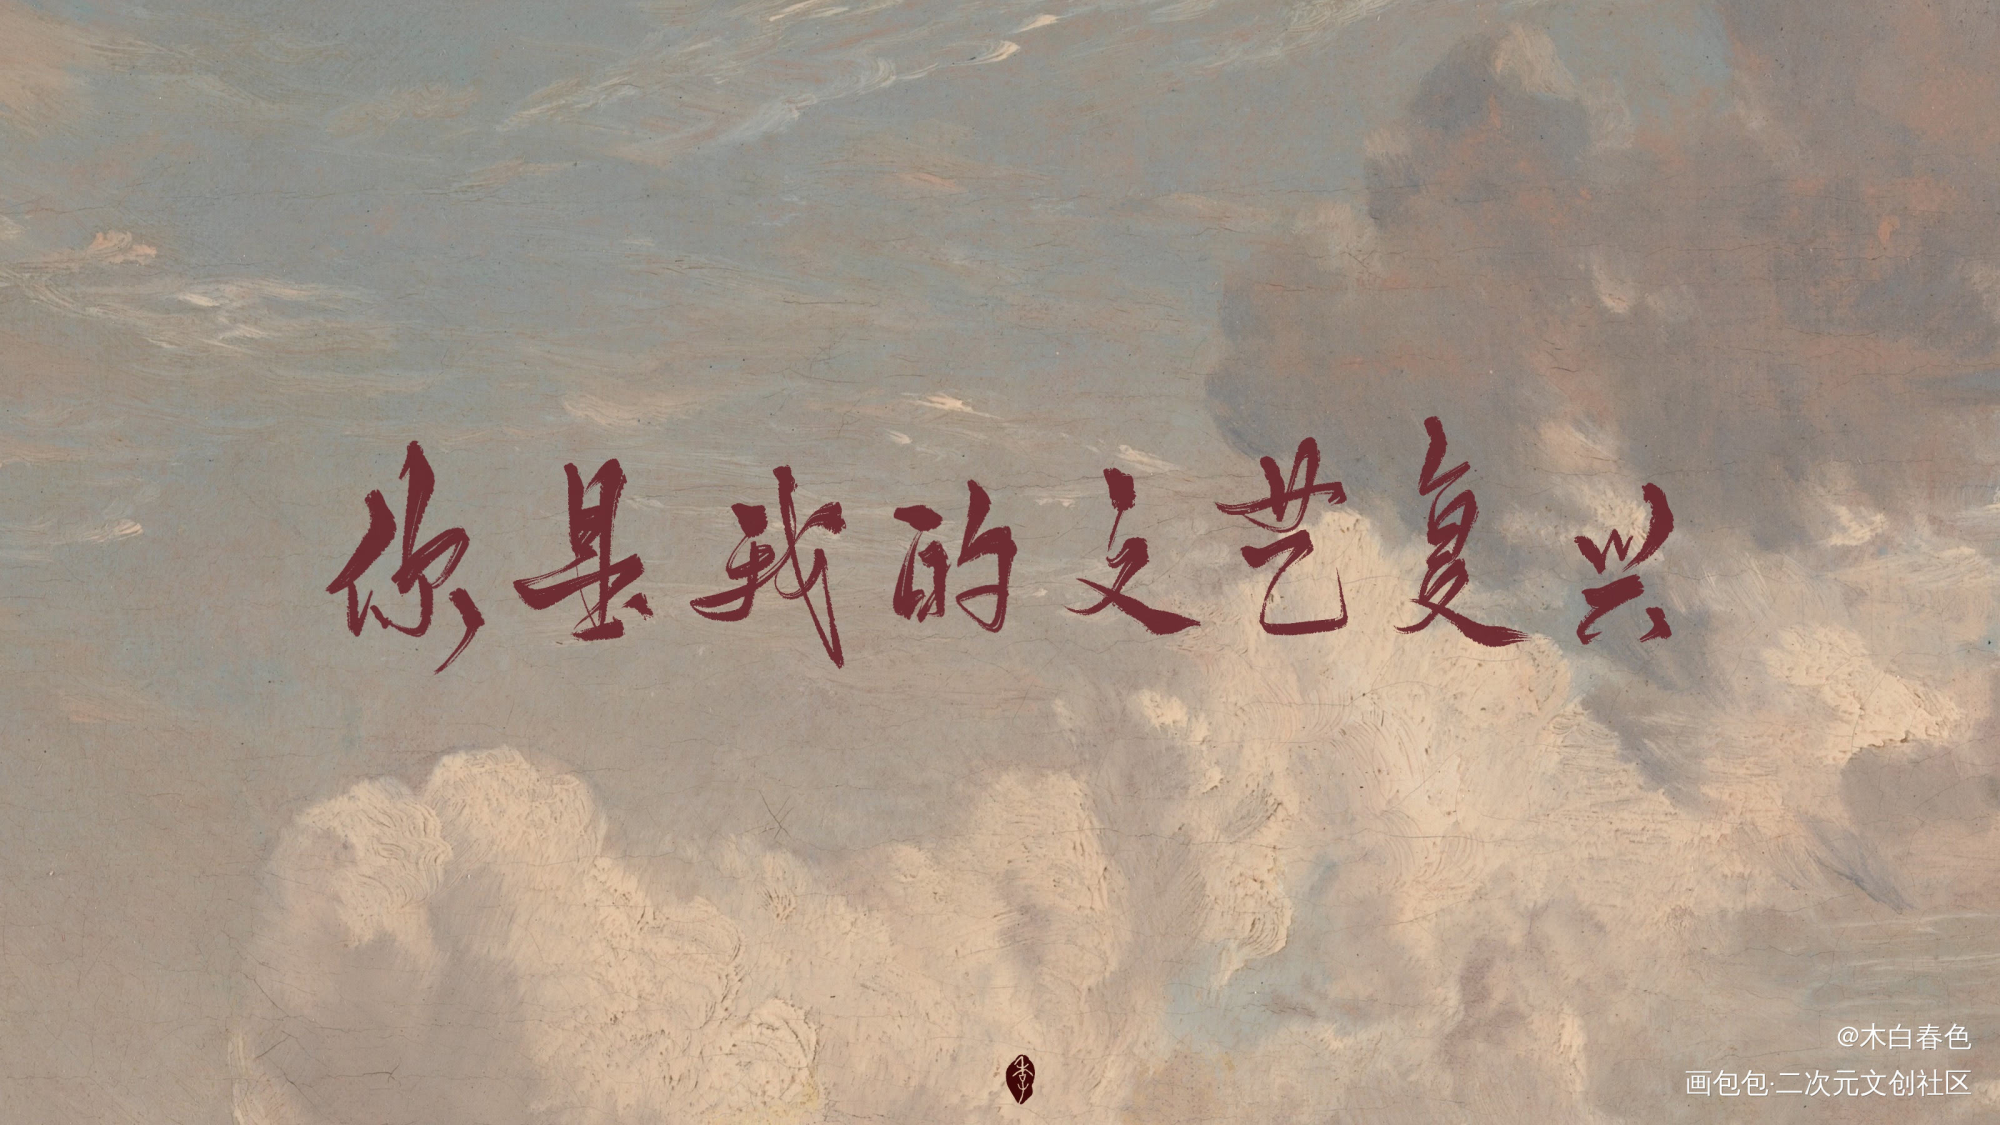 你是我的文艺复兴
李
@木白春色
画包包·二次元文创社区